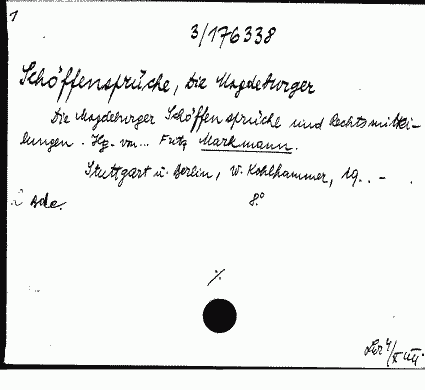 1
3/176338
Schöffensprüche, Die Magdeburger
Die Magdeburger Schöffensprüche und Rechtsmittei-
lungen. Hg. von... Fritz Markmann.
Stuttgart u. Berlin, W. Kohlhammer, 19.. - .
Bde. 8°